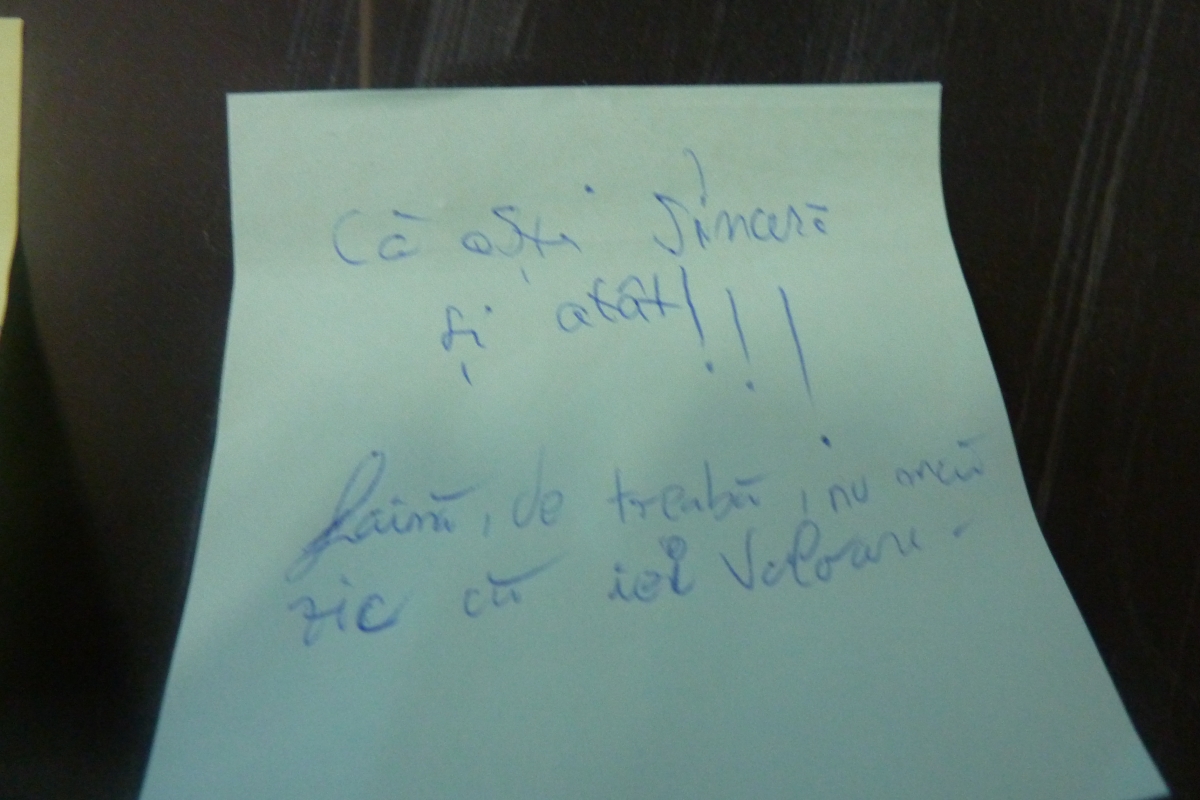 Că ești Sinceră
și atât!!!
faină, de treabă, nu mai
zic că iei Valoare